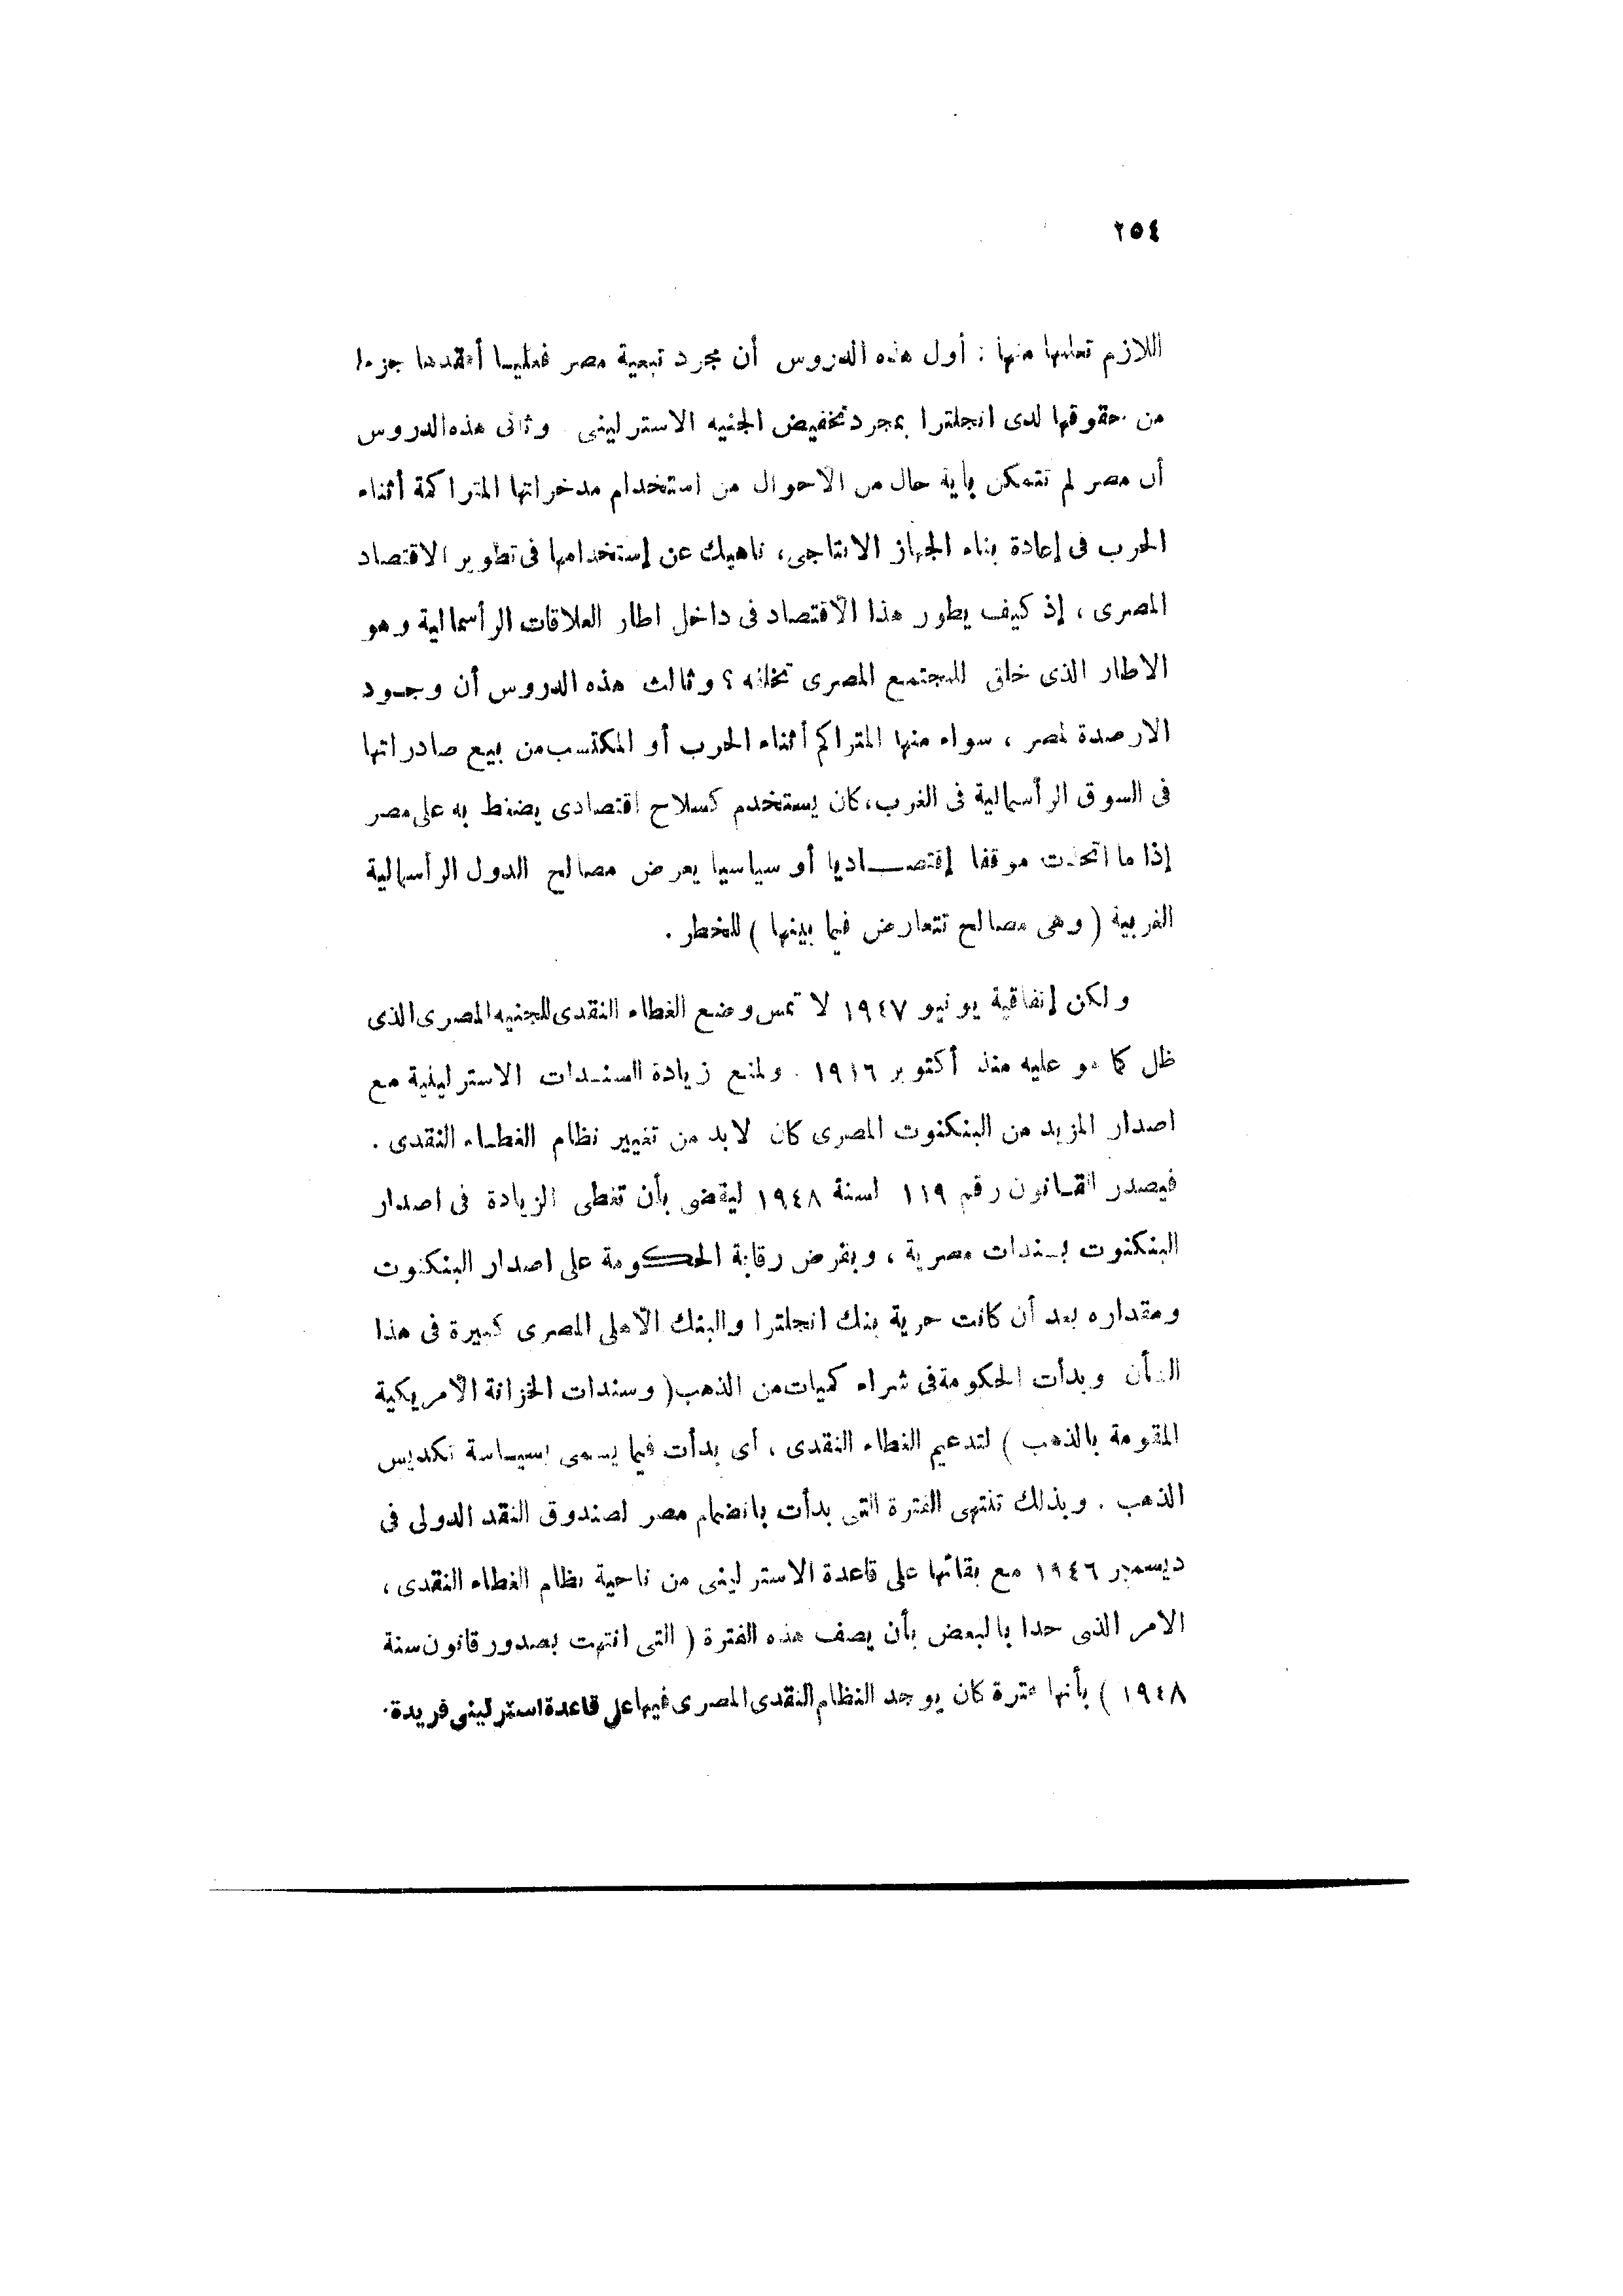 ٢٥٤
اللازم تعلمها منها : أول هذه الدروس أن مجرد تبعية مصر فعليا أفقدها جزءا
من حقوقها لدى انجلترا بمجرد تخفيض الجنيه الاسترلينى . وثانى هذه الدروس
أن مصر لم تتمكن بأية حال من الأحوال من استخدام مدخراتها المتراكمة أثناء
الحرب فى إعادة بناء الجهاز الانتاجى ، ناهيك عن إستخدامها فى تطوير الاقتصاد
المصرى ، إذ كيف يطور هذا الاقتصاد فى داخل اطار العلاقات الرأسمالية وهو
الاطار الذى خلق للمجتمع المصرى تخلفه ؟ وثالث هذه الدروس أن وجود
الارصدة لمصر ، سواء منها المتراكم أثناء الحرب أو المكتسب من بيع صادراتها
فى السوق الرأسمالية فى الغرب ، كان يستخدم كسلاح اقتصادى يضغط به على مصر
إذا ما اتخذت موقفا إقتصاديا أو سياسيا يعرض مصالح الدول الرأسمالية
الغربية ( وهى مصالح تتعارض فيما بينها ) للخطر .
ولكن إتفاقية يونيو ١٩٤٧ لا تمس وضع الغطاء النقدى للجنيه المصرى الذى
ظل كما هو عليه منذ أكتوبر ١٩١٦ . ولمنع زيادة السندات الاسترلينية مع
اصدار المزيد من البنكنوت المصرى كان لابد من تغيير نظام الغطاء النقدى .
فيصدر القانون رقم ١١٩ لسنة ١٩٤٨ ليقضى بأن تغطى الزيادة فى اصدار
البنكنوت بسندات مصرية ، وبفرض رقابة الحكومة على اصدار البنكنوت
ومقداره بعد أن كانت حرية بنك انجلترا والبنك الأهلى المصرى كبيرة فى هذا
الشأن وبدأت الحكومة فى شراء كميات من الذهب ( وسندات الخزانة الأمريكية
المقومة بالذهب ) لتدعيم الغطاء النقدى ، أى بدأت فيما يسمى بسياسة تكديس
الذهب . وبذلك تنتهى الفترة التى بدأت بانضمام مصر لصندوق النقد الدولى فى
ديسمبر ١٩٤٦ مع بقائها على قاعدة الاسترلينى من ناحية نظام الغطاء النقدى ،
الامر الذى حدا بالبعض بأن يصف هذه الفترة ( التى انتهت بصدور قانون سنة
١٩٤٨ ) بأنها فترة كان يوجد النظام النقدى المصرى فيها على قاعدة استرلينى فريدة .